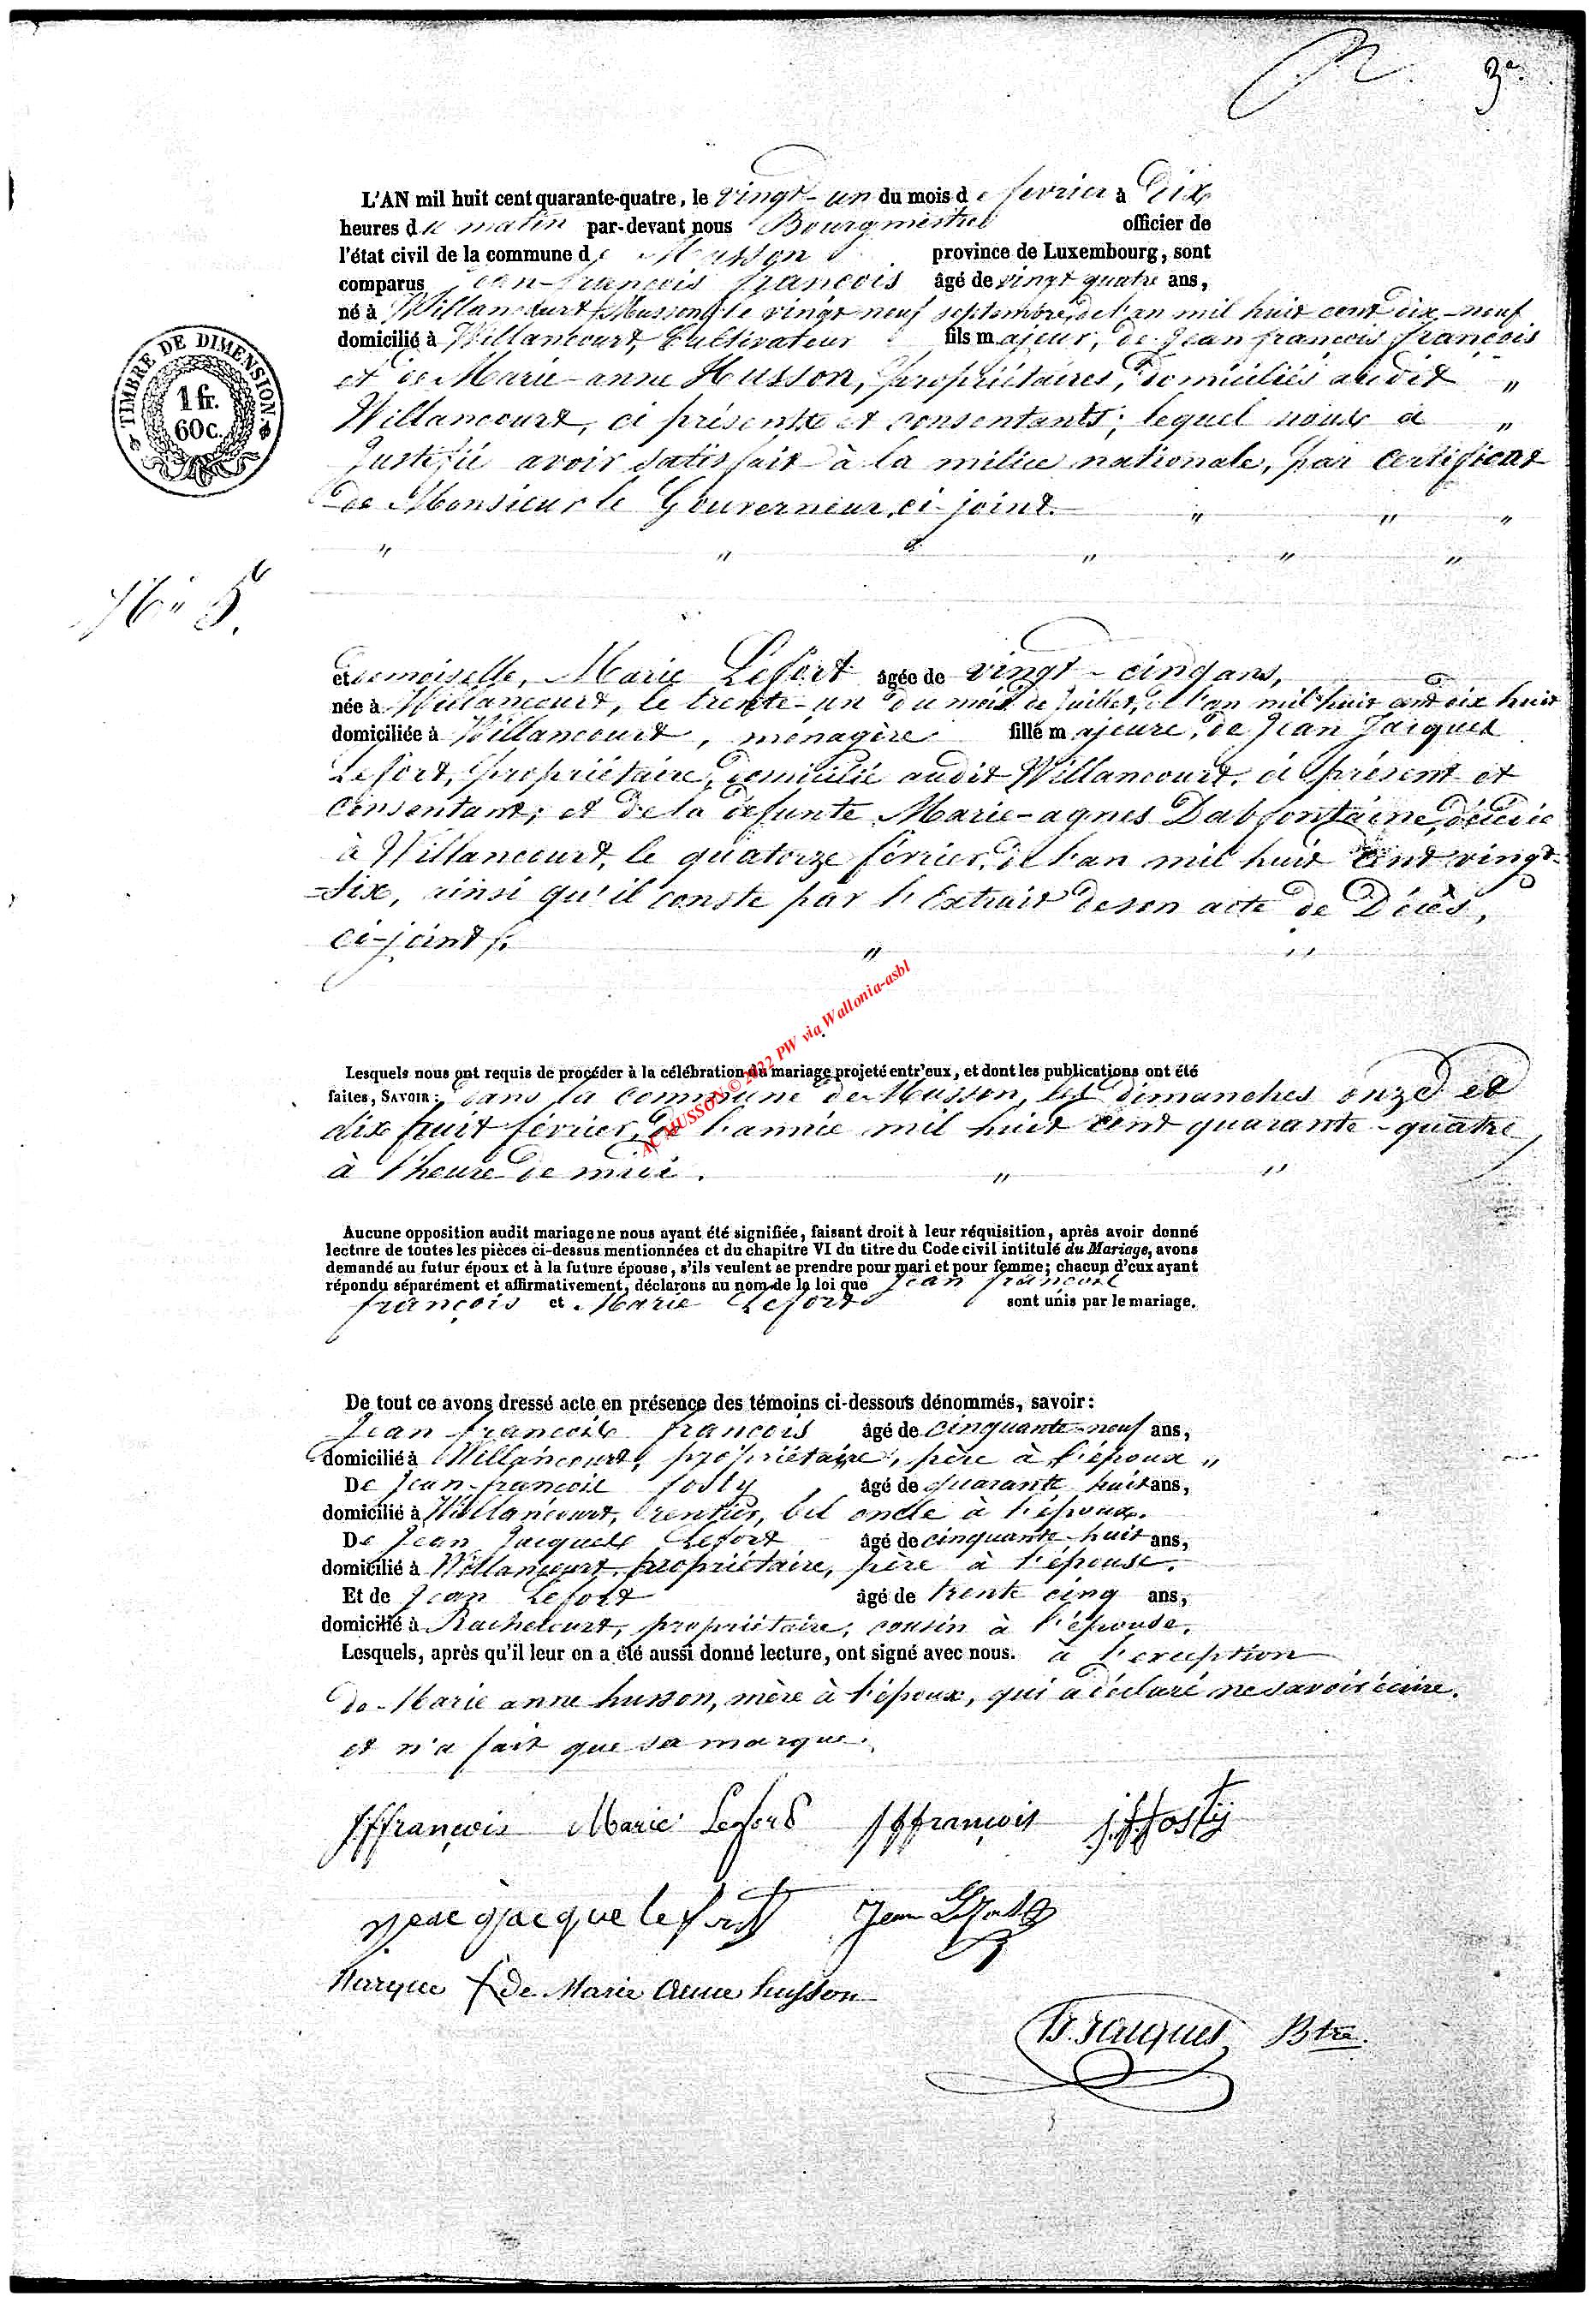 3e.
L'AN mil huit cent quarante-quatre, le vingt-un du mois de fevrier à Dix
heures du matin par-devant nous Bourgmestre officier de
l'état civil de la commune de Musson province de Luxembourg, sont
comparus Jean-françois françois âgé de vingt quatre ans,
né à Willancourt (Musson) le vingt neuf septembre, de l'an mil huit cent dix-neuf
domicilié à Willancourt, Cultivateur fils majeur, de Jean françois françois
et de Marie-anne Husson, propriétaires, domiciliés audit "
TIMBRE DE DIMENSION.
1 fr.
60 c.
Willancourt, ci présents et consentants; lequel nous a "
Justifié avoir satisfait à la milice nationale, par certificat
de Monsieur le Gouverneur, ci-joint. " " "
" " " " "
No 5.
et demoiselle, Marie Lefort âgée de vingt-cinq ans,
née à Willancourt, le trente-un du mois de Juillet, de l'an mil huit cent dix huit
domiciliée à Willancourt, ménagère fille majeure, de Jean Jacques
Lefort, propriétaire, domicilié audit Willancourt, ci présent et
consentant; et de la défunte Marie-agnes Dabfontaine, décédée
à Willancourt, le quatorze février, de l'an mil huit cent vingt-
-six, ainsi qu'il conste par l'Extrait de son acte de Décès,
ci-joint. " "
AC MUSSON © 2022 PW via Wallonia-asbl
Lesquels nous ont requis de procéder à la célébration du mariage projeté entr'eux, et dont les publications ont été
faites, SAVOIR: dans la commune de Musson, les dimanches onze et
dix huit février, de l'année mil huit cent quarante-quatre,
à l'heure de midi. " "
Aucune opposition audit mariage ne nous ayant été signifiée, faisant droit à leur réquisition, après avoir donné
lecture de toutes les pièces ci-dessus mentionnées et du chapitre VI du titre du Code civil intitulé du Mariage, avons
demandé au futur époux et à la future épouse, s'ils veulent se prendre pour mari et pour femme; chacun d'eux ayant
répondu séparément et affirmativement, déclarons au nom de la loi que Jean françois
françois et Marie Lefort sont unis par le mariage.
De tout ce avons dressé acte en présence des témoins ci-dessous dénommés, savoir:
Jean françois françois âgé de cinquante-neuf ans,
domicilié à Willancourt, propriétaire, père à l'époux "
De Jean-françois Josty âgé de quarante huit ans,
domicilié à Willancourt, rentier, bel oncle à l'époux.
De Jean Jacques Lefort âgé de cinquante-huit ans,
domicilié à Willancourt, propriétaire, père à l'épouse.
Et de Jean Lefort âgé de trente cinq ans,
domicilié à Rachecourt, propriétaire, cousin à l'épouse.
Lesquels, après qu'il leur en a été aussi donné lecture, ont signé avec nous. à l'exception
de Marie anne husson, mère à l'époux, qui a déclaré ne savoir écrire.
et n'a fait que sa marque.
Jffrançois Marie Lefort Jffrançois j.f.Hosty
jean jacque lefort Jean Lefort
Marque de Marie Anne husson
Jacques Btre.